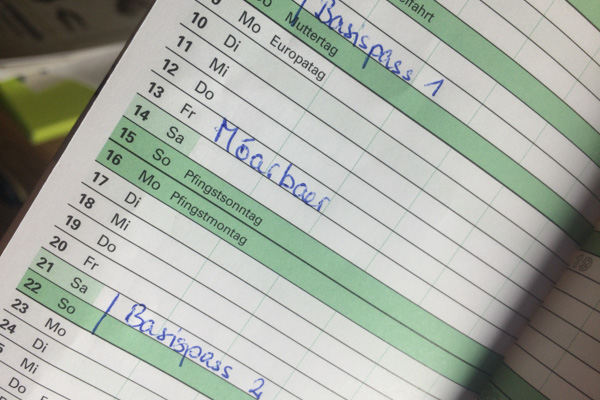 elfahrt
Basispass 1
So Muttertag
9 Mo Europatag
10 Di
11 Mi
12 Do
13 Fr
14 Sa Móarbaer
15 So Pfingstsonntag
16 Mo Pfingstmontag
17 Di
18 Mi
19 Do
20 Fr
21 Sa Basispass 2
22 So
23 Mo
24 Di
5 Mi
Do